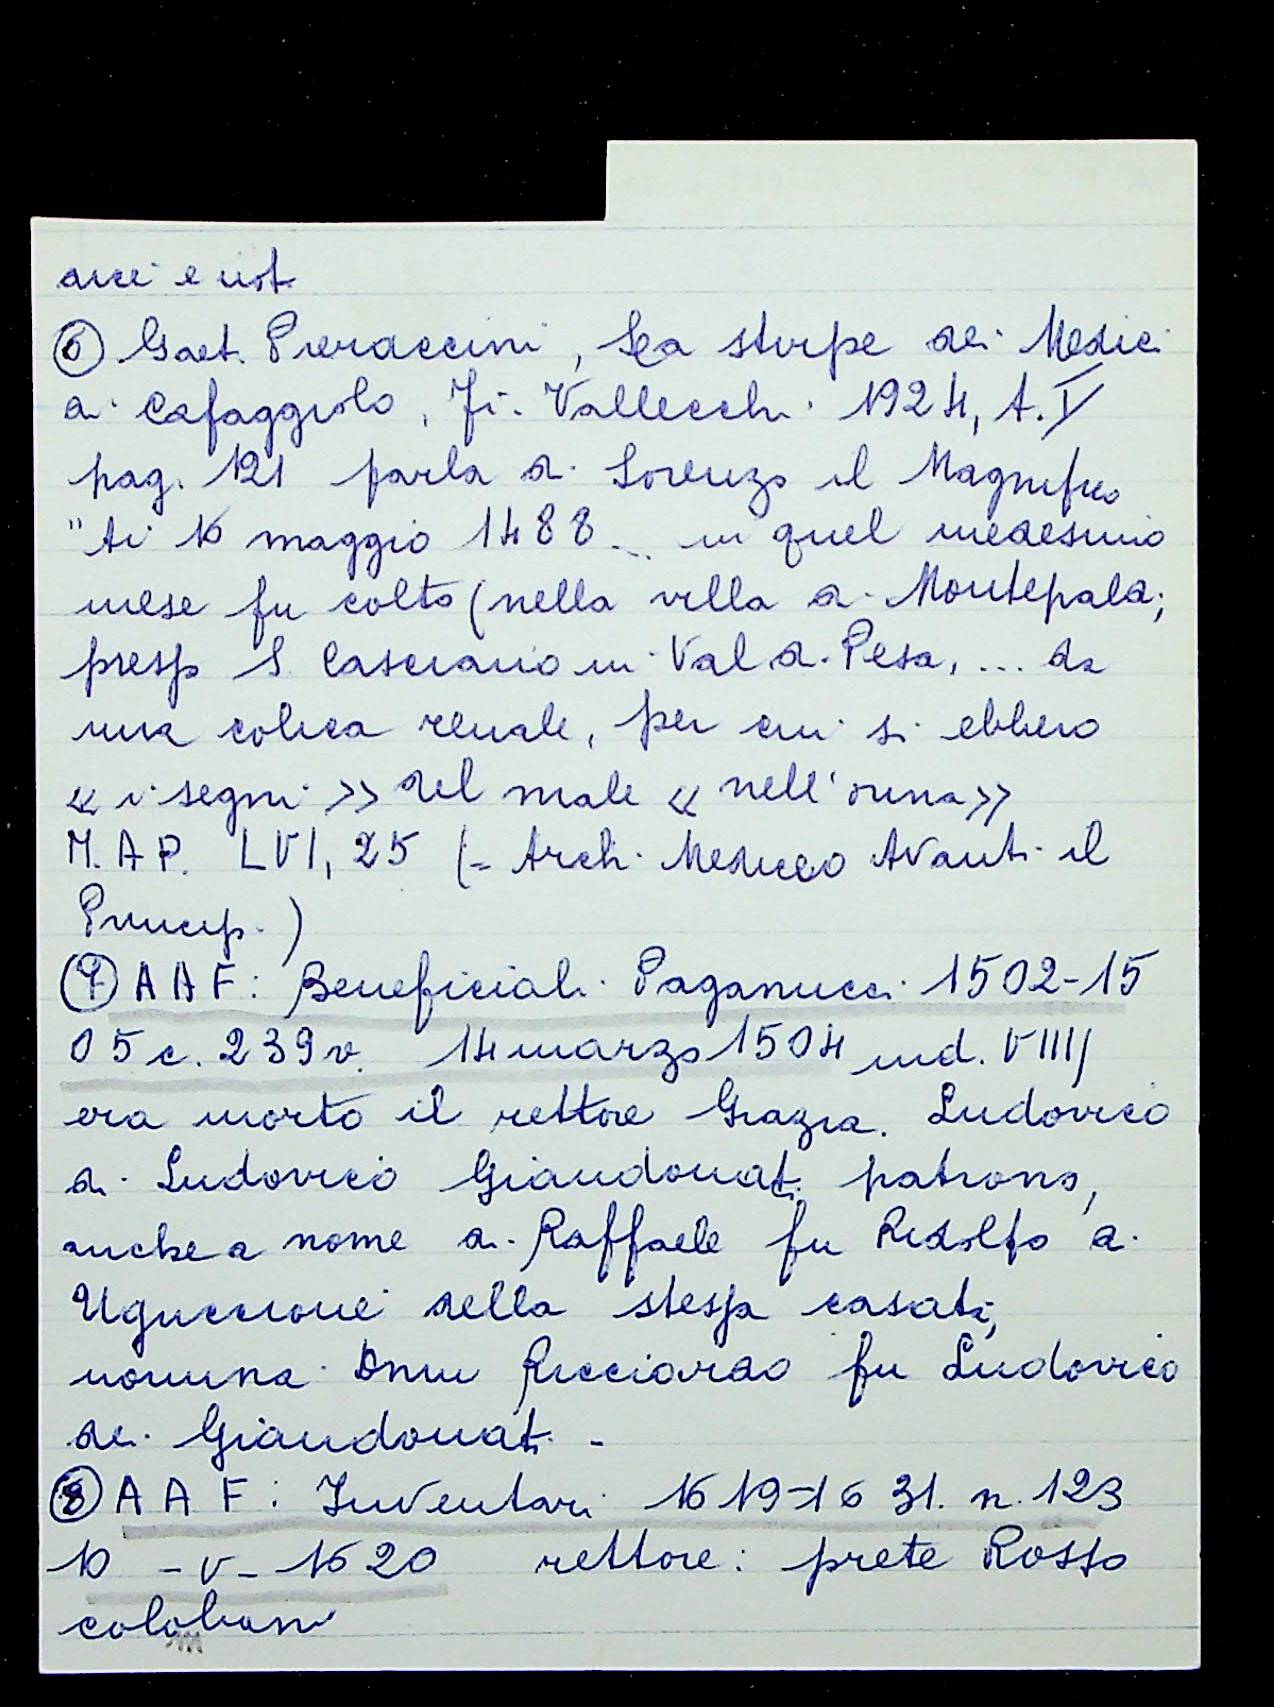 arci e not.
⑥ Gaet. Pieraccini, La stirpe dei Medici
di Cafaggiolo, Fi. Vallecchi 1924, t. I
pag. 121 parla di Lorenzo il Magnifico
"Ai 16 maggio 1488... in quel medesimo
mese fu colto (nella villa di Montepaldi
presso S. Casciano in Val di Pesa, ... da
una colica renale, per cui si ebbero
« i segni » del male « nell'orina »
M.A.P. LVI, 25 (= Arch. Mediceo Avanti il
Princip.)
⑦ AAF: Beneficiali Paganucci 1502-15
05 c. 239v. 14 marzo 1504 ind. VIIII
era morto il rettore Grazia. Ludovico
di Ludovico Giandonati patrono,
anche a nome di Raffaele fu Ridolfo di
Uguccione della stessa casata,
nomina Dnm Ricciardo fu Ludovico
dei Giandonati. -
⑧ AAF: Inventari 1619-1631. n. 123
10 - V - 1620 rettore: prete Rosso